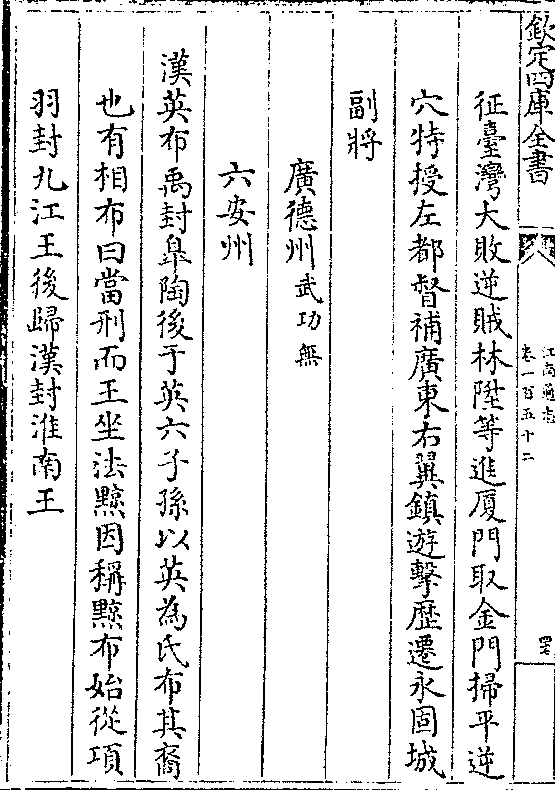 欽定四庫全書
江南通志
卷一百五十二
征臺灣大敗逆賊林陞等進厦門取金門掃平逆
穴特授左都督補廣東右翼鎮遊擊歴遷永固城
副將
廣德州武功無
六安州
漢英布禹封臯陶後于英六子孫以英為氏布其裔
也有相布曰當刑而王坐法黥因稱黥布始從項
羽封九江王後歸漢封淮南王